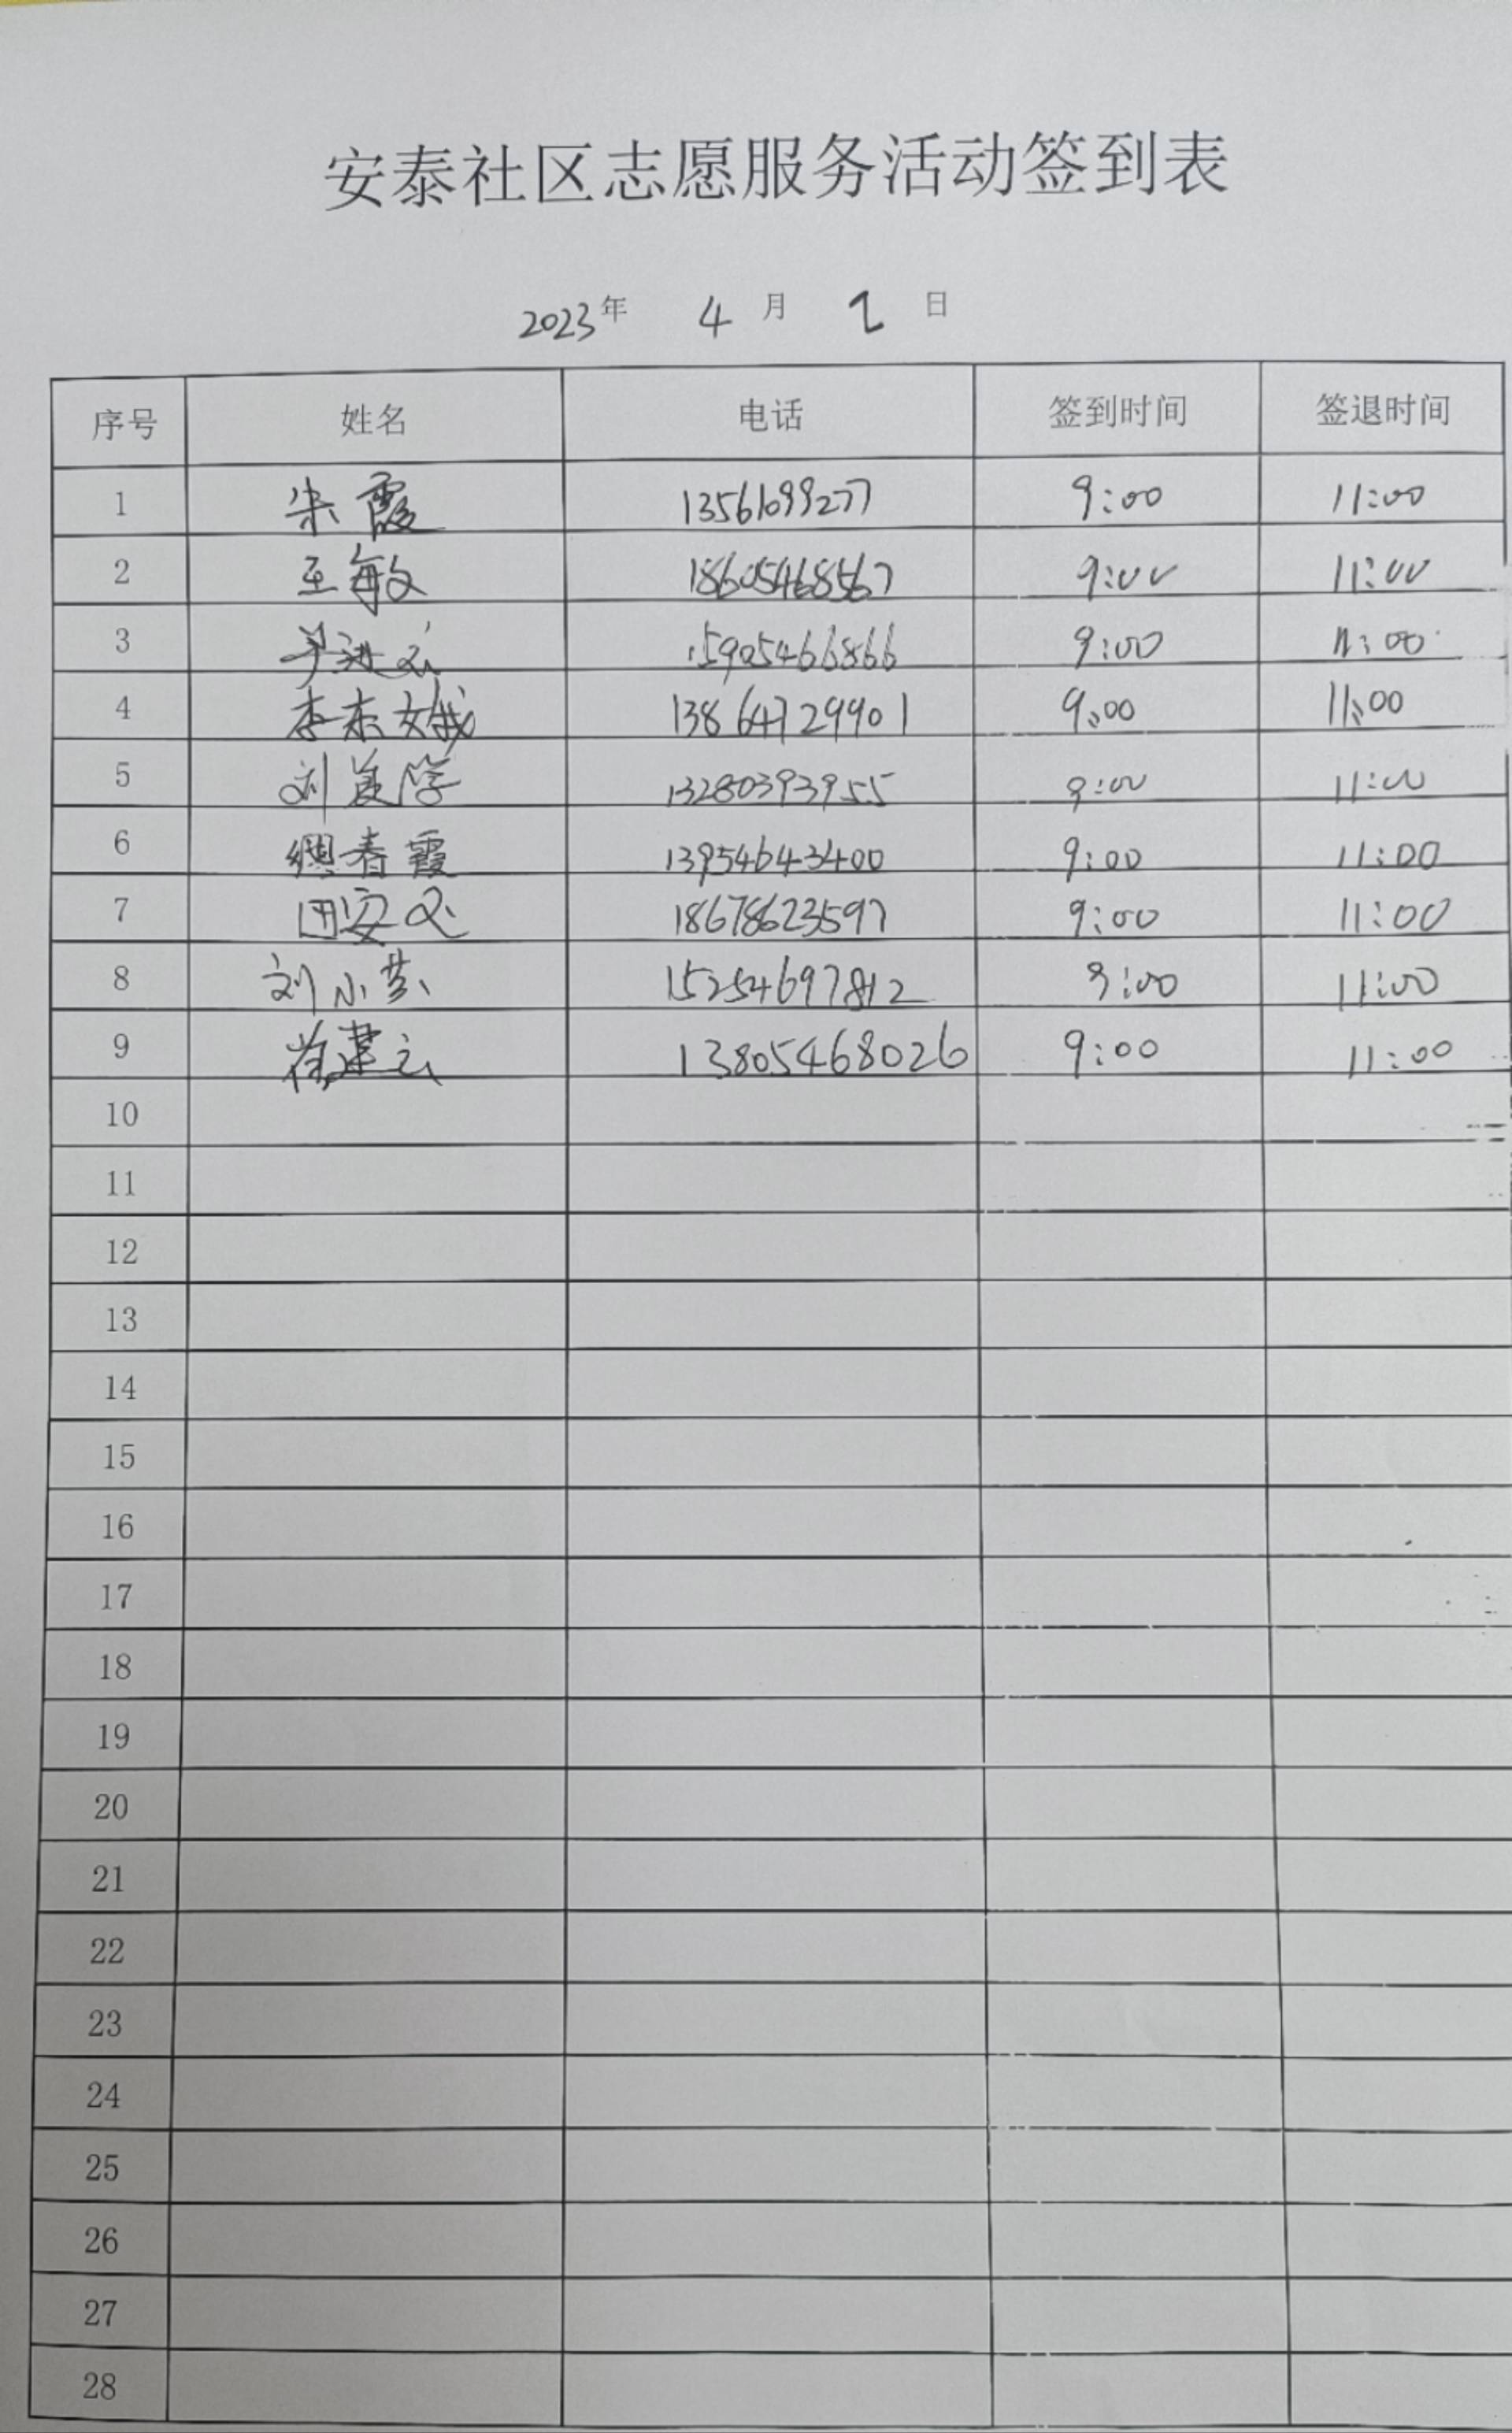 安泰社区志愿服务活动签到表
2023年 4月 2日
序号 姓名 电话 签到时间 签退时间
1 朱霞 13561099277 9:00 11:00
2 王敏 18605468567 9:00 11:00
3 15905466866 9:00 11:00
4 李东娥 13864729901 9:00 11:00
5 刘美学 13280393955 9:00 11:00
6 春霞 13954643400 9:00 11:00
7 田安 18678623597 9:00 11:00
8 刘小芬 15254697812 9:00 11:00
9 建云 13805468026 9:00 11:00
10
11
12
13
14
15
16
17
18
19
20
21
22
23
24
25
26
27
28